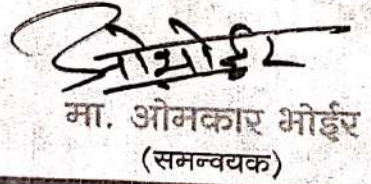 मा. ओमकार भोईर
(समन्वयक)